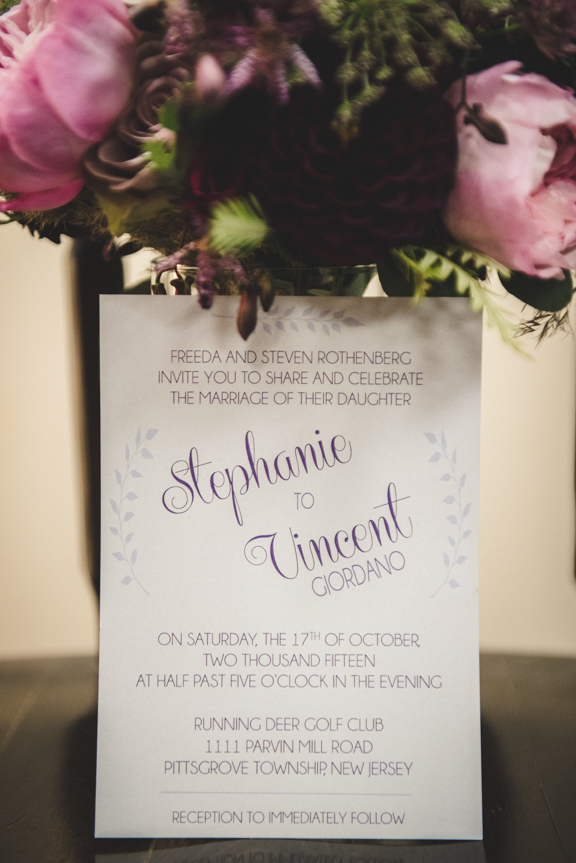 FREEDA AND STEVEN ROTHENBERG
INVITE YOU TO SHARE AND CELEBRATE
THE MARRIAGE OF THEIR DAUGHTER
Stephanie
TO
Vincent
GIORDANO
ON SATURDAY, THE 17TH OF OCTOBER,
TWO THOUSAND FIFTEEN
AT HALF PAST FIVE O'CLOCK IN THE EVENING
RUNNING DEER GOLF CLUB
1111 PARVIN MILL ROAD
PITTSGROVE TOWNSHIP, NEW JERSEY
RECEPTION TO IMMEDIATELY FOLLOW